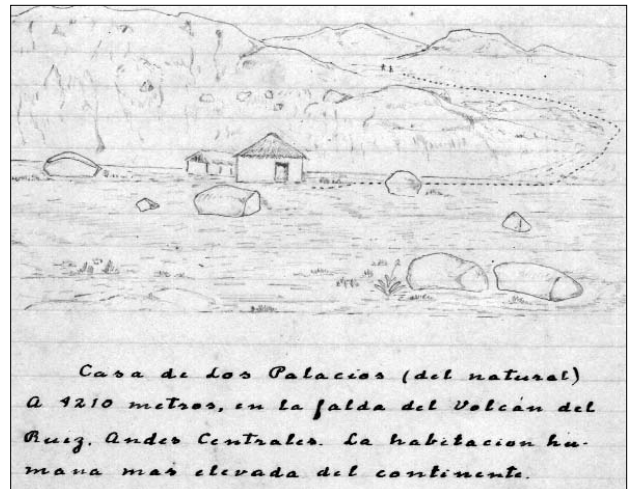 Casa de Los Palacios (del natural)
A 4210 metros, en la falda del Volcán del
Ruiz. Andes Centrales. La habitacion hu-
mana mas elevada del continente.